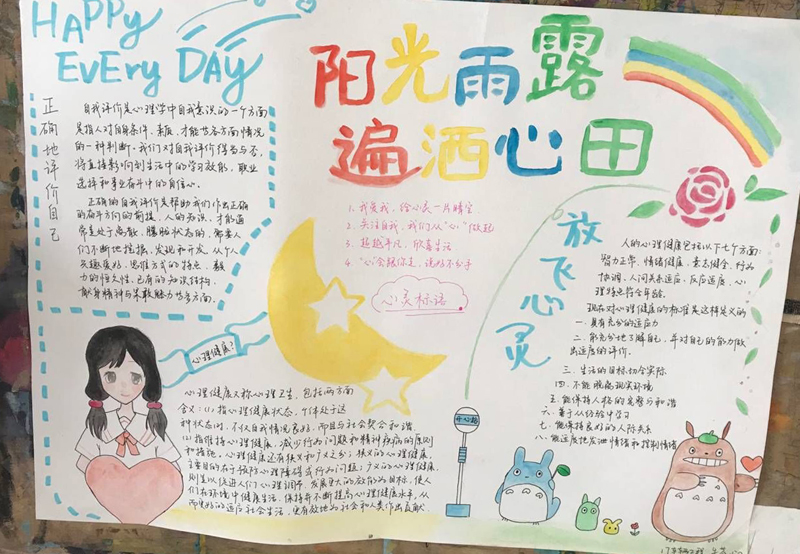 HAPPy
EVEry DAY
阳光雨露
遍洒心田
正确地评价自己
自我评价是心理学中自我意识的一个方面
是指人对自身条件、素质、才能等各方面情况
的一种判断。我们对自我评价得当与否,
将直接影响到生活中的学习效能,职业
选择和事业奋斗中的自信心。
正确的自我评价是帮助我们作出正确
的奋斗方向的前提,人的知识、才能通
常是处于离散、朦胧状态的,需要人
们不断地挖掘、发现和开发。从个人
兴趣爱好,思维方式的特点、毅力
的恒久性、已有的知识结构、
献身精神与果敢魅力等多方面。
1. 我爱我,给心灵一片晴空
2. 关注自我,我们从“心”做起
3. 超越平凡,欣喜生活
4. “心”会跟你走,说好不分手
心灵标语
放飞心灵
人的心理健康包括以下七个方面:
智力正常、情绪健康、意志健全、行为
协调、人间关系适应、反应适度、心
理特点符合年龄
现在对心理健康的标准是这样定义的
一. 具有充分的适应力
二. 能充分地了解自己,并对自己的能力做
出适度的评价.
三. 生活的目标切合实际
四. 不能脱离现实环境
五. 能保持人格的完整与和谐
六. 善于从经验中学习
七. 能保持良好的人际关系
八. 能适度地发泄情绪和控制情绪
心理健康?
心理健康又称心理卫生,包括两方面
含义:(1)指心理健康状态,个体处于这
种状态时,不仅自我情况良好,而且与社会契合和谐
(2)指维持心理健康、减少行为问题和精神疾病的原则
和措施。心理健康还有狭义和广义之分:狭义的心理健康,
主要目的在于预防心理障碍或行为问题;广义的心理健康,
则是以促进人们心理调节、发展更大的效能为目标,使人
们在环境中健康生活,保持并不断提高心理健康水平,从
而更好的适应社会生活,更有效地为社会和人类作出贡献.
开心站